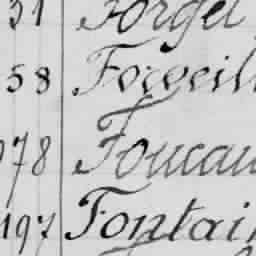 31 Forget
58 Forveill
978 Foucau
197 Fontain